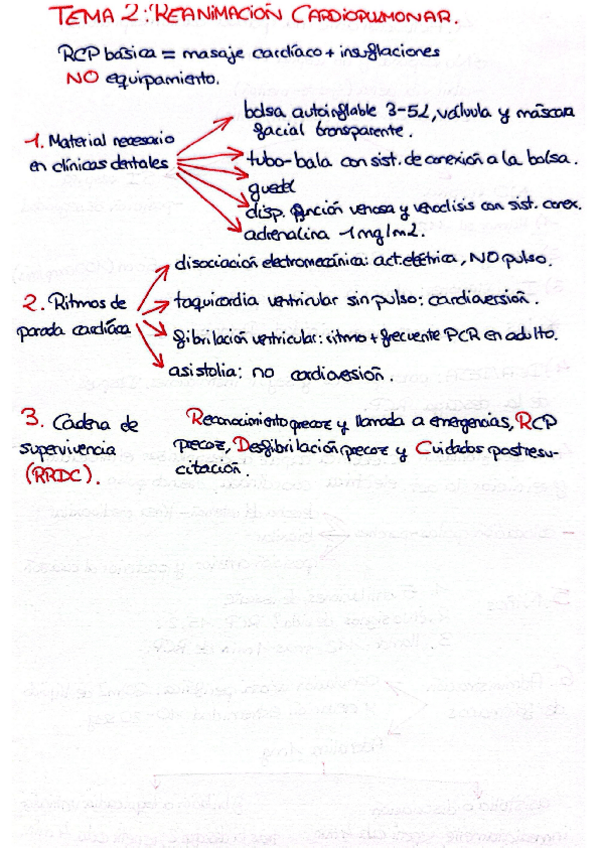 TEMA 2: REANIMACIÓN CARDIOPULMONAR.
RCP básica = masaje cardíaco + insuflaciones
NO equipamiento.
1. Material necesario
en clínicas dentales
bolsa autoinflable 3-5L, válvula y máscara
facial transparente.
tubo-bala con sist. de conexión a la bolsa.
guedel
disp. punción venosa y venoclisis con sist. conex.
adrenalina 1mg/mL.
2. Ritmos de
parada cardíaca
disociación electromecánica: act. eléctrica, NO pulso.
taquicardia ventricular sin pulso: cardioversión.
fibrilación ventricular: ritmo + frecuente PCR en adulto.
asistolia: no cardioversión.
3. Cadena de
supervivencia
(RRDC).
Reconocimiento precoz y llamada a emergencias, RCP
precoz, Desfibrilación precoz y Cuidados postresu-
citación.